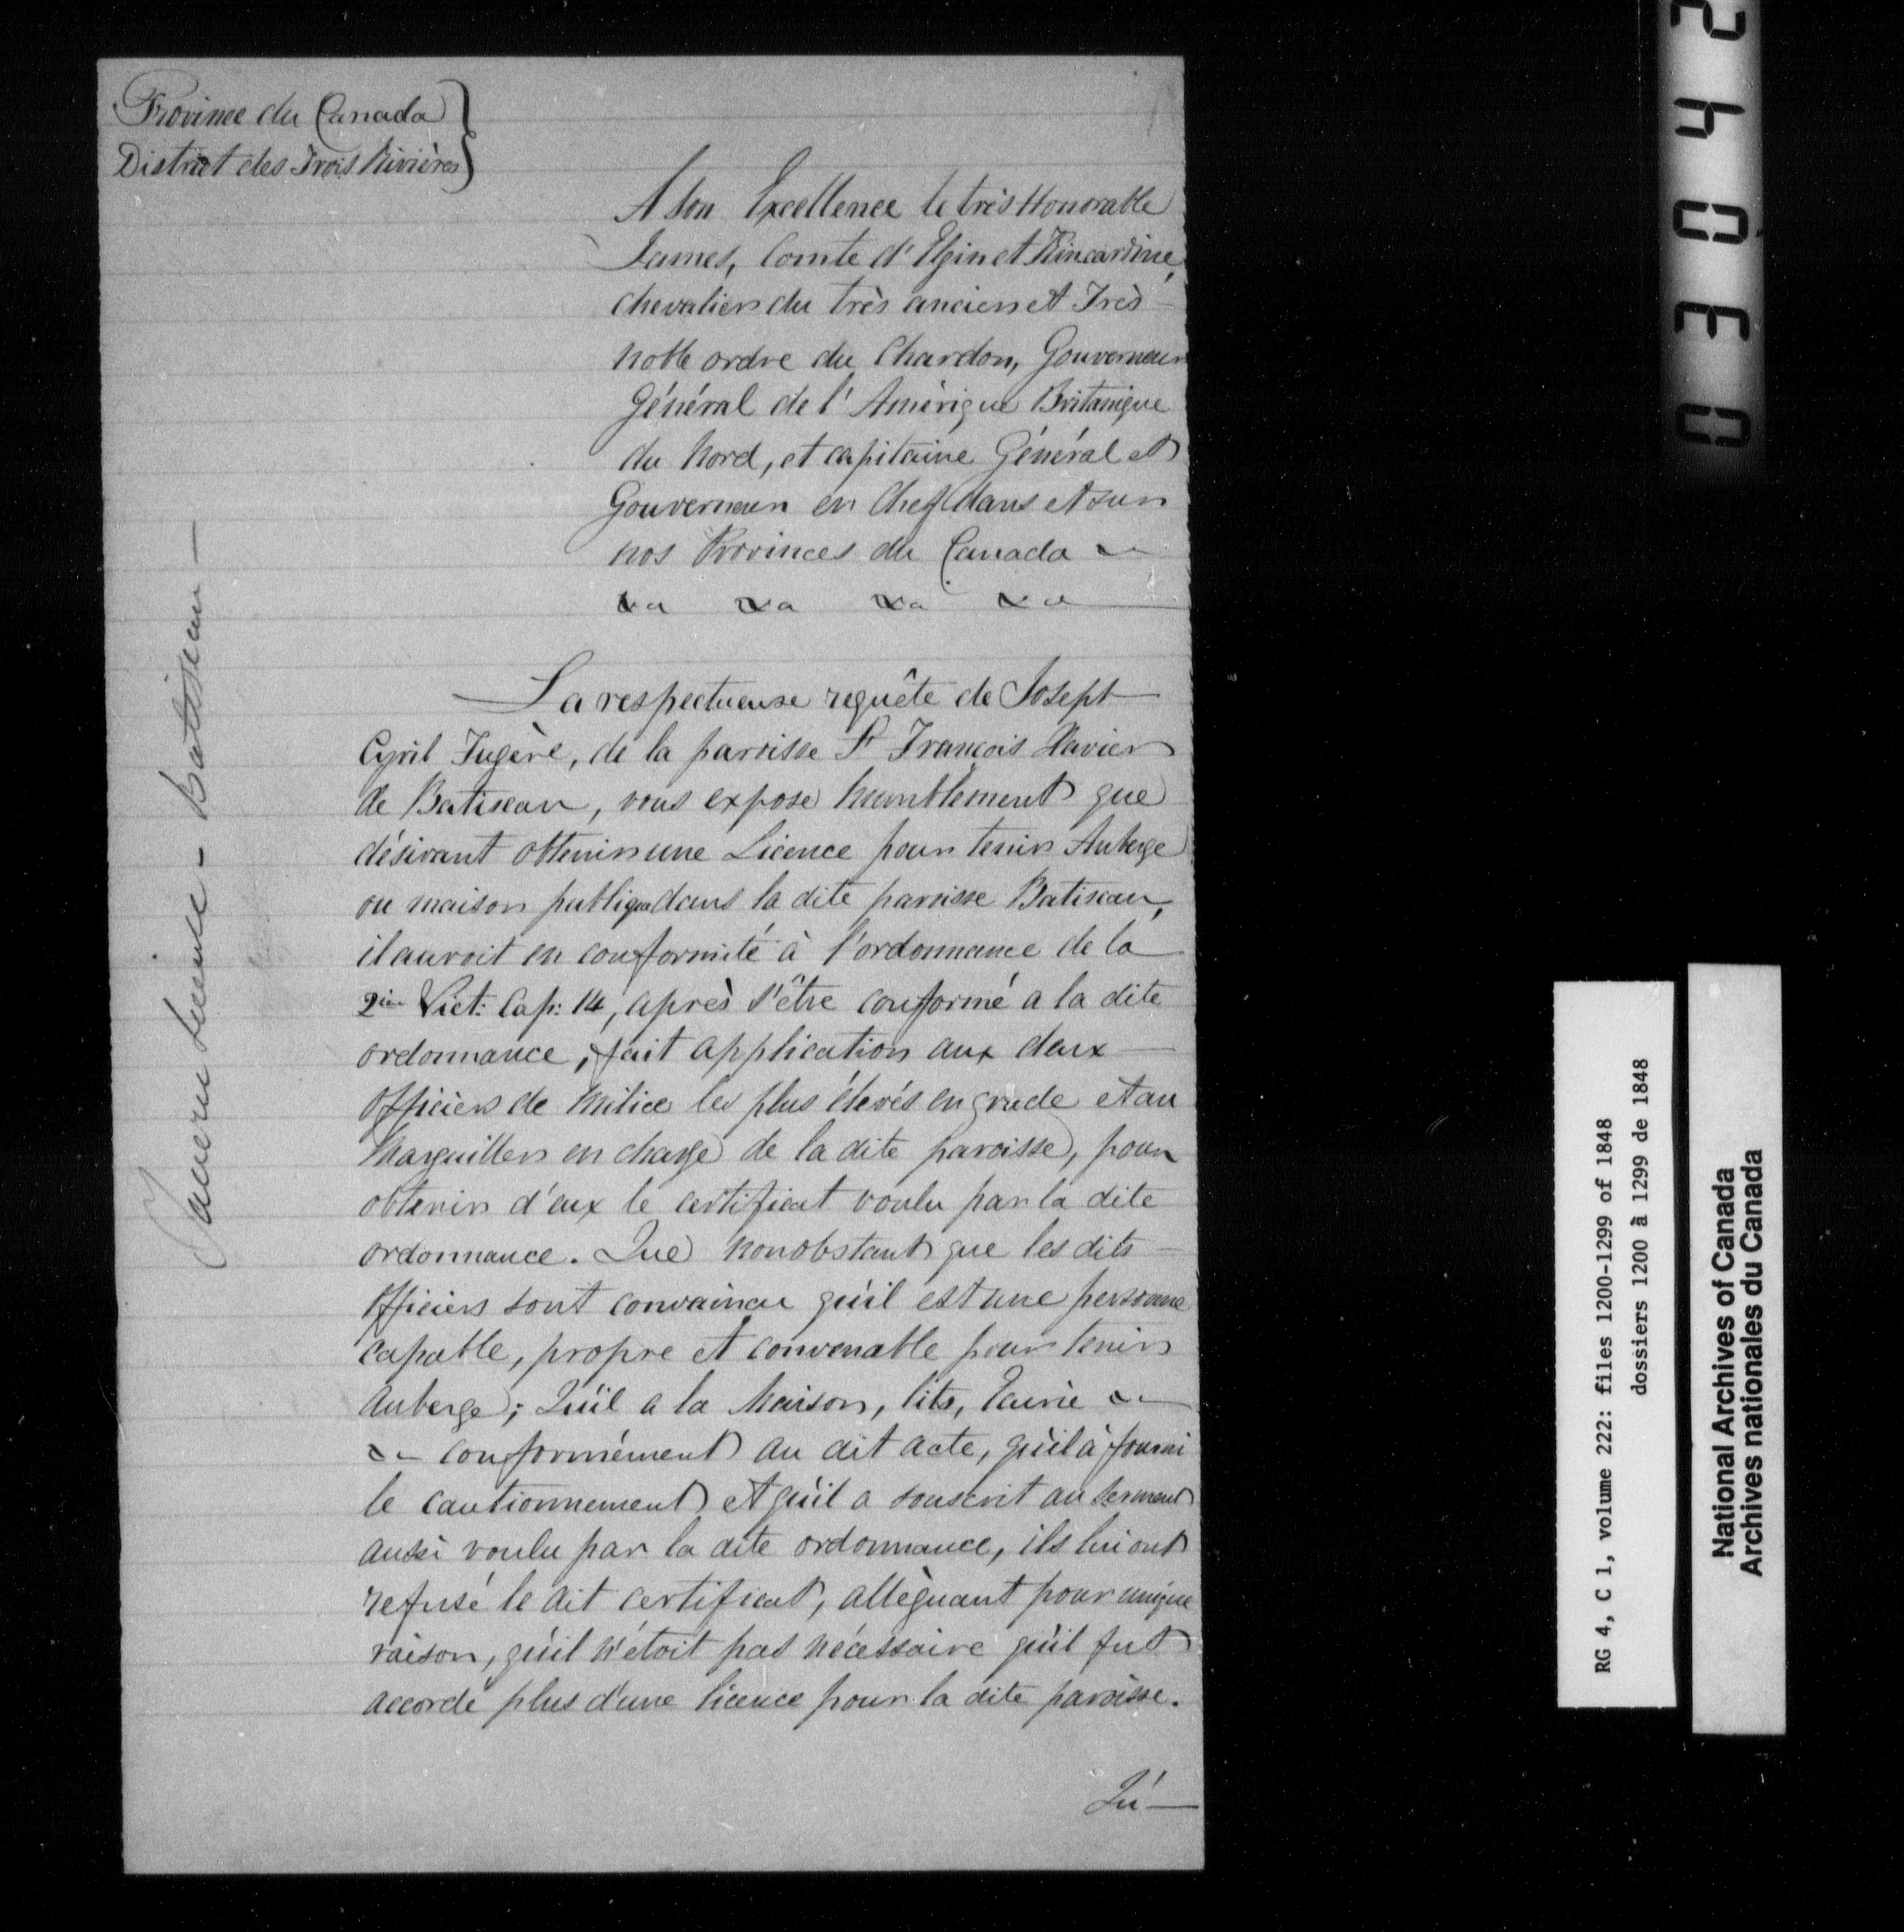 Province du Canada
District des Trois Rivières
A Son Excellence le très Honorable
James, Comte d'Elgin et Kincardine,
chevalier du très ancien et Très
noble ordre du Chardon, Gouverneur
Général de l'Amérique Britanique
du Nord, et capitaine Général et
Gouverneur en Chef dans et sur
nos Provinces du Canada &a
&a &a &a &a
La respectueuse requête de Joseph
Cyril Fugère, de la paroisse St François Xavier
de Batiscan, vous expose humblement que
désirant obtenir une Licence pour tenir Auberge
ou maison publique dans la dite paroisse Batiscan,
il auroit en conformité à l'ordonnance de la
2ieme Vict: Cap: 14, après s'être conformé a la dite
ordonnance, fait application aux deux
officiers de Milice les plus élevés en grade et au
Marguiller en charge de la dite paroisse, pour
obtenir d'eux le certificat voulu par la dite
ordonnance. Que nonobstant que les dits
officiers sont convaincu qu'il est une personne
capable, propre et convenable pour tenir
Auberge; Qu'il a la Maison, lits, Ecurie &a
&a conformément au dit acte, qu'il à fourni
le cautionnement et qu'il a souscrit au serment
aussi voulu par la dite ordonnance, ils lui ont
refusé le dit certificat, allèguant pour unique
raison, qu'il n'étoit pas nécessaire qu'il fut
accordé plus d'une licence pour la dite paroisse.
Qu'
Tavern Licence - Batiscan -
03042
RG 4, C 1, volume 222: files 1200-1299 of 1848
dossiers 1200 à 1299 de 1848
National Archives of Canada
Archives nationales du Canada